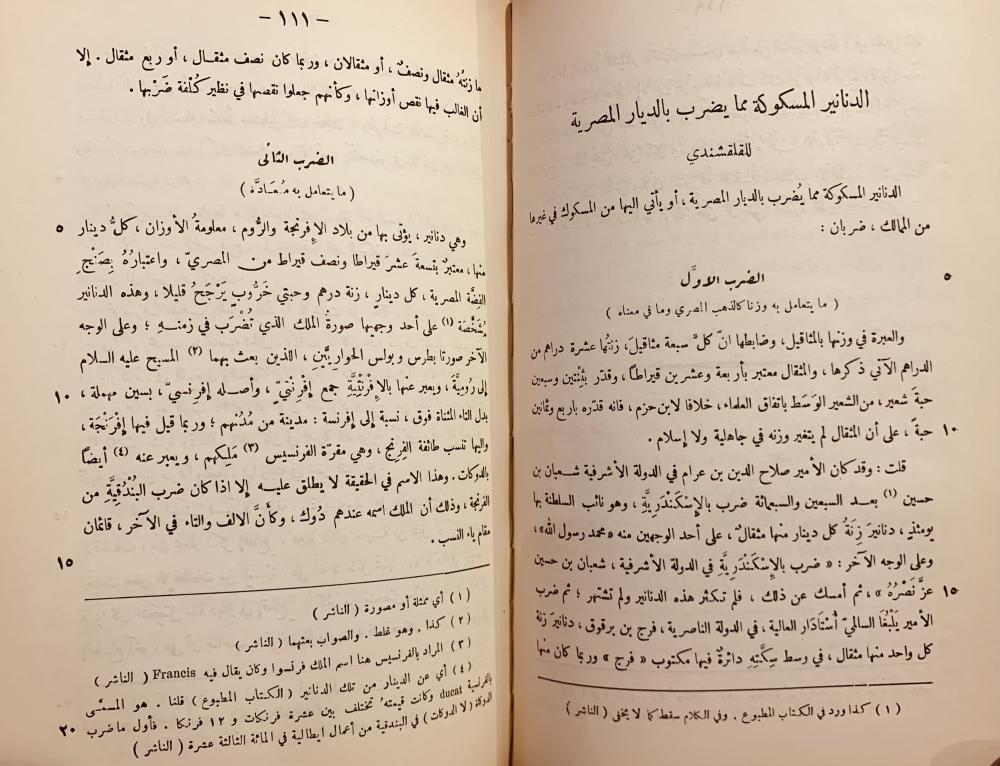 الدنانير المسكوكة مما يضرب بالديار المصرية
للقلقشندي
الدنانير المسكوكة مما يُضرب بالديار المصرية ، أو يأتي اليها من المسكوك في غيرها
من الممالك ، ضربان :
الضرب الاوَّل
٥
( ما يتعامل به وزنا كالذهب المصري وما في معناه )
والعبرة في وزنها بالمثاقيل، وضابطها انّ كلَّ سبعة مثاقيلَ، زنتُها عشرة دراهم من
الدراهم الآتي ذكرها ، والمثقال معتبر بأربعة وعشرين قيراطًا، وقدّر بثِنْتين وسبعين
حبةَ شعير ، من الشعير الوَسَط باتفاق العلماء ، خلافا لابن حزم ، فانه قدّره باربع وثمانين
حبةً ، على أن المثقال لم يتغير وزنه في جاهلية ولا إسلام .
١٠
قلت : وقد كان الأمير صلاح الدين بن عرام في الدولة الأشرفية شعبان بن
حسين (١) بعد السبعين والسبعمائة ضرب بالإسْكَنْدَرِيَّةِ ، وهو نائب السلطنة بها
يومئذٍ ، دنانيرَ زِنَةُ كل دينار منها مثقالٌ ، على أحد الوجهين منه «محمد رسول الله»،
وعلى الوجه الآخر : « ضرب بالإسْكَنْدَرِيَّةِ في الدولة الأشرفية ، شعبان بن حسين
عزَّ نَصْرُهُ » ، ثم أمسك عن ذلك ، فلم تكثر هذه الدنانير ولم تشتهر ؛ ثم ضرب
١٥
الأمير يَلْبُغَا السالميّ أُسْتَادَار العالية ، في الدولة الناصرية ، فرج بن برقوق ، دنانيرَ زنة
كل واحد منها مثقال ، في وسط سِكَّتِهِ دائرةٌ فيها مكتوب « فرج » وربما كان منها
(١) كذا ورد في الكتاب المطبوع . وفي الكلام سقط كما لا يخفى (الناشر)
– ١١١ –
ما زنتُهُ مثقال ونصفٌ ، أو مثقالان ، وربما كان نصف مثقال ، أو ربع مثقال . إلا
أن الغالب فيها نقص أوزانها ، وكأنهم جعلوا نقصها في نظير كُلْفة ضَرْبها .
الضرب الثاني
( ما يتعامل به مُعَادَّةً )
وهي دنانير ، يؤتى بها من بلاد الإفرنجة والرُّوم ، معلومةُ الأوزان ، كلُّ دينار
٥
منها ، معتبرٌ بتسعةَ عشرَ قيراطا ونصف قيراط من المصريّ ، واعتبارُهُ بصَنْجِ
الفِضَّة المصرية ، كل دينارٍ ، زنة درهم وحبتي خَرُّوبٍ يَرْجَحُ قليلا ، وهذه الدنانير
مُشَخَّصَة (١) على أحد وجهيها صورةُ الملك الذي تُضْرَب في زمنه ؛ وعلى الوجه
الآخر صورتا بطرس وبولس الحواريَّيْنِ ، اللذين بعث بهما (٢) المسيح عليه السلام
إلى رُومِيَّةَ ، ويعبر عنها بالإِفْرَنْتِيَّةِ جمع إفْرَنْتيّ ، وأصله إفرنسيّ ، بسين مهملة ،
١٠
بدل التاء المثناة فوق ، نسبة إلى إفرنسة : مدينة من مُدُنهم ؛ وربما قيل فيها إفْرَنْجَة ،
واليها تنسب طائفة الفِرنْج ، وهي مقرّة الفرنسيس (٣) مَلِيكهم ، ويعبر عنه (٤) أيضًا
بالدوكات . وهذا الاسم في الحقيقة لا يطلق عليه إلا اذا كان ضرب البُنْدُقِيَّةِ من
الفرنجة ، وذلك أن الملك اسمه عندهم دُوك ، وكأنَّ الالف والتاء في الآخر ، قائمان
مقام ياء النسب .
١٥
(١) أي ممثلة أو مصورة (الناشر)
(٢) كذا . وهو غلط . والصواب بعثهما (الناشر)
(٣) المراد بالفرنسيس هنا اسم الملك فرنسوا وكان يقال فيه Francis ( الناشر )
(٤) أي عن الدينار من تلك الدنانير (الكتاب المطبوع) قلنا . هو المسمّى
بالفرنسية ducat وكانت قيمتهُ تختلف بين عشرة فرنكات و ١٢ فرنكا . فأول ما ضرب
٢٠
الدوكاة (لا الدوكات) في البندقية من أعمال ايطالية في المائة الثالثة عشرة (الناشر)